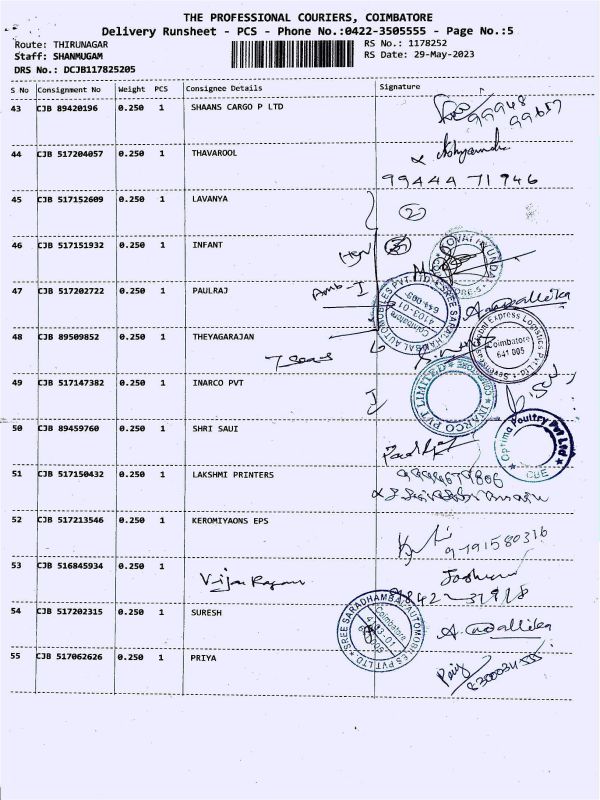 THE PROFESSIONAL COURIERS, COIMBATORE
Delivery Runsheet - PCS - Phone No.:0422-3505555 - Page No.:5
Route: THIRUNAGAR
RS No.: 1178252
Staff: SHANMUGAM
RS Date: 29-May-2023
DRS No.: DCJB117825205
S No Consignment No Weight PCS Consignee Details Signature
43 CJB 89420196 0.250 1 SHAANS CARGO P LTD
99948
99657
44 CJB 517204057 0.250 1 THAVAROOL
99444 71946
45 CJB 517152609 0.250 1 LAVANYA
2
46 CJB 517151932 0.250 1 INFANT
47 CJB 517202722 0.250 1 PAULRAJ
SREE SARADHAMBAL AUTOMOBILES PVT. LTD
Coimbatore
48 CJB 89509852 0.250 1 THEYAGARAJAN
7 Seas
Global Express Logistics Pvt Ltd
Coimbatore
641 005
49 CJB 517147382 0.250 1 INARCO PVT
INARCO PVT LIMITED
COIMBATORE
50 CJB 89459760 0.250 1 SHRI SAUI
Optima Poultry Pvt Ltd
CBE
51 CJB 517150432 0.250 1 LAKSHMI PRINTERS
9994679806
52 CJB 517213546 0.250 1 KEROMIYAONS EPS
9791580316
53 CJB 516845934 0.250 1
54 CJB 517202315 0.250 1 SURESH
SREE SARADHAMBAL AUTOMOBILES PVT LTD
Coimbatore
55 CJB 517062626 0.250 1 PRIYA